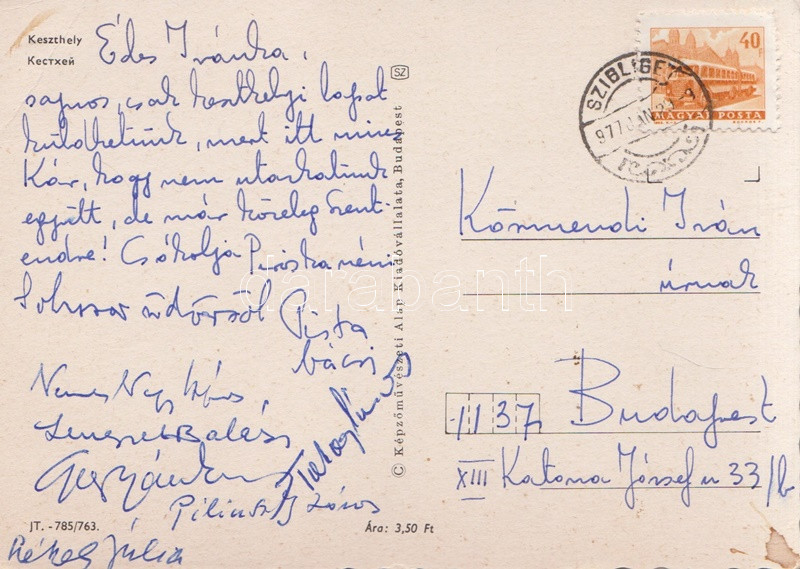 Keszthely
Кестхей
Édes Ivánka,
sajnos, csak keszthelyi lapot
küldhetünk, mert itt nincs
Kár, hogy nem utazhatunk
együtt, de már közeleg Szent-
endre! Csókolja Piroska néni
Sokszor üdvözöl Pista
bácsi
Nemes Nagy Ágnes,
Lengyel Balázs
Takáts
Pilinszky János
Rékey Júlia
JT. - 785/763.
Ára: 3,50 Ft
© Képzőművészeti Alap Kiadóvállalata, Budapest
SZ
SZIGLIGET
977 JAN 23
40 F
MAGYAR POSTA
Körmendi Iván
úrnak
1137 Budapest
XIII Katona József u 33/b
darabanth